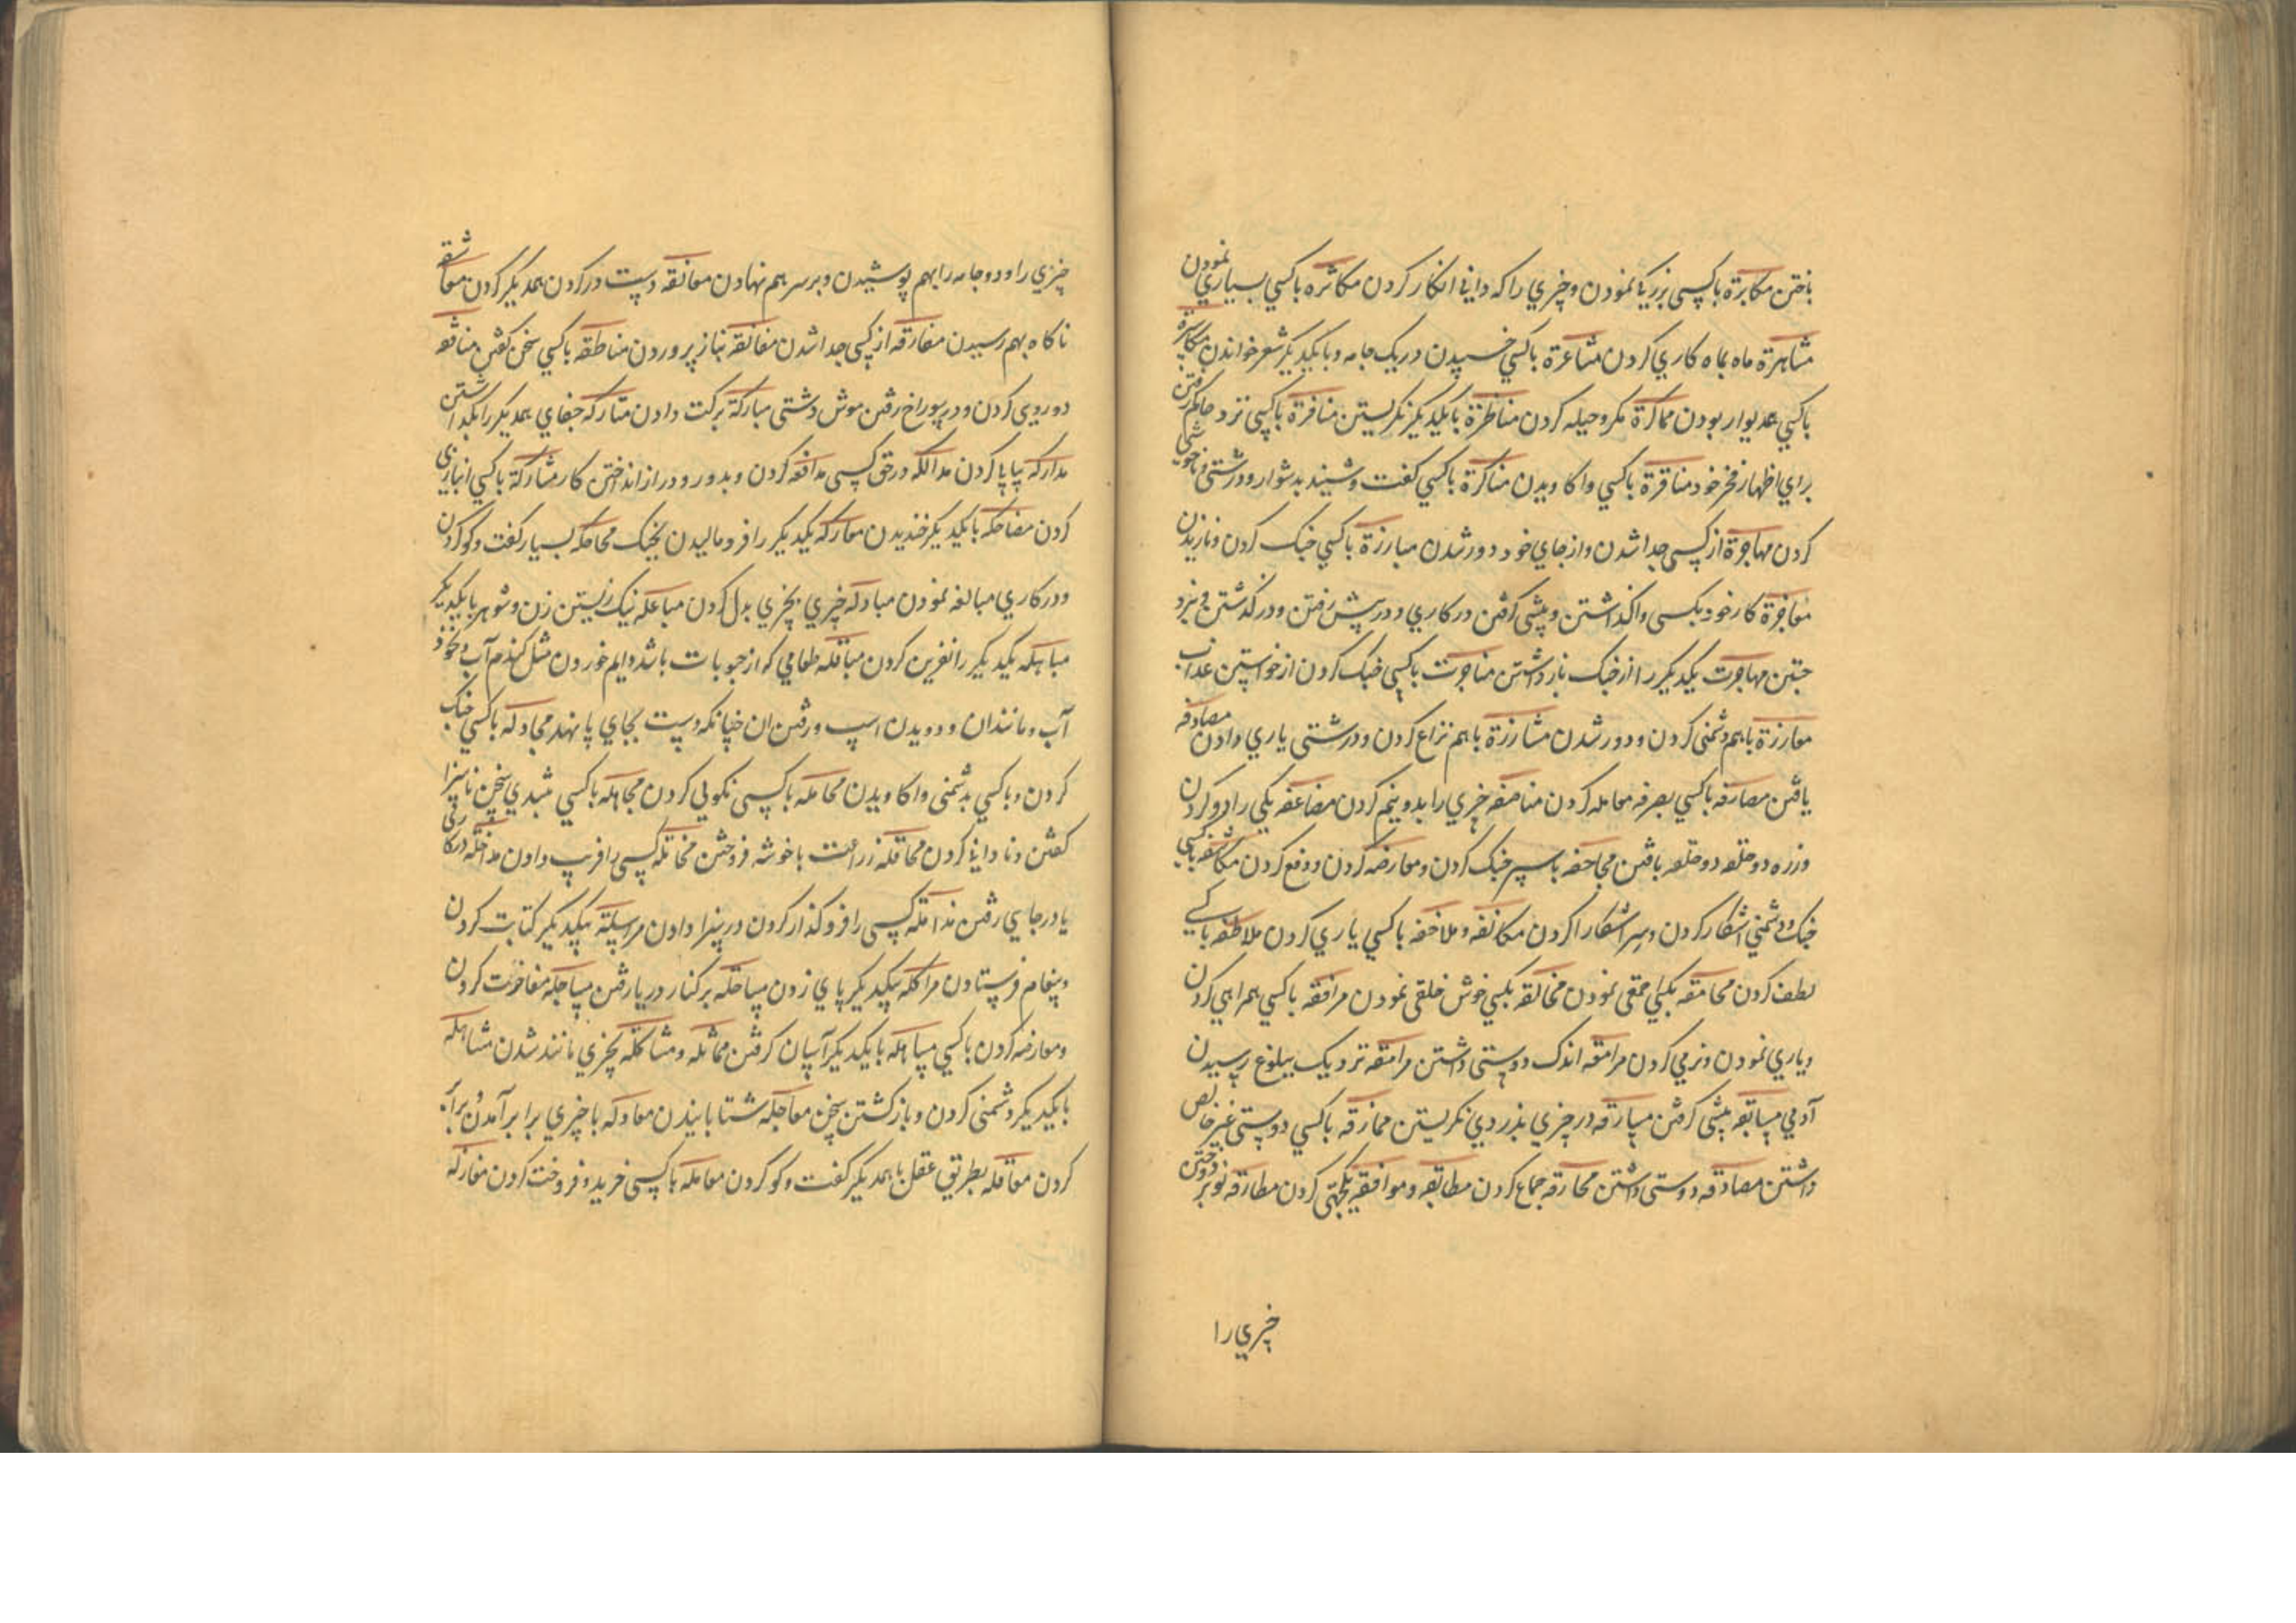 باختن مکابرة باکسی بزرکی نمودن وچیزي راکه داني انکار کردن مکاثره باکسي بسیاري نمودن
مشاهرة ماه بماه کاري کردن مشاعرة باکسي خسپیدن دریک جامه وبایکدیکر شعر خواندن مکاسرة
باکسي همدیوار بودن مماکرة مکروحیله کردن مناظرة بایکدیکر نکریستن منافرة باکسي نزد حاکم رفتن
براي اظهار فخر خود مناقرة باکسي واکاویدن مناکرة باکسي کفت وشنید بدشوار ودرشتي وناخوشي
کردن مهاجرة از کسی جدا شدن واز جاي خود دور شدن مبارزة باکسي جنک کردن ونازیدن
معاجزة کار خود بکسی واکذاشتن وپیشی کرفتن در کاري ودر پیش رفتن ودر کذشتن ونبرد
جستن مهاجزت یکدیکر را از جنک بازداشتن مناجزت باکسي جنک کردن از خواستن عذاب
معارزة باهم دشمني کردن ودور شدن مشارزة باهم نزاع کردن ودرشتی یاري دادن مصادفه
یافتن مصارفه باکسي بصرفه معامله کردن مناصفه چیزي را بدو نیم کردن مضاعفه یکي را دو کردن
وزره دوحلقه دوحلقه بافتن مجاحفه باسپر جنک کردن ومعارضه کردن ودفع کردن مکاشفه باکسي
جنک ودشمني آشکار کردن وسر آشکارا کردن مکانفه وملاخفه باکسي یاري کردن ملاطفه باکسے
لطف کردن محامقه بکسي احمقی نمودن مخالقه بکسي خوش خلقی نمودن مرافقه باکسي همراهي کردن
ویاري نمودن ونرمي کردن مرامقه اندک دوستی داشتن مراهقه نزدیک ببلوغ رسیدن
آدمي مسابقه پیشی کرفتن مسارقه در چیزي بدزدي نکریستن ممازقه باکسي دوستي غیر خالص
داشتن مصادقه دوستی داشتن محارقه جماع کردن مطابقه وموافقه یکجهتی کردن مطارقه نو بر دوختن
چیزي را
چیزي را ودو جامه را بهم پوشیدن وبرسر هم نهادن معانقه دست در کردن همدیکر کردن معاشقه
ناکاه بهم رسیدن مفارقه از کسی جدا شدن مفانقه بناز پروردن مناطقه باکسي سخن کفتن منافقه
دورویي کردن ودر سوراخ رفتن موش دشتی مبارکة برکت دادن متارکه جفاي همدیکر را بکذاشتن
مدارکه پیاپی کردن مدالکه در حق کسی مدافعه کردن وبدور ودراز انداختن کار مشارکة باکسي انبازي
کردن مضاحکه بایکدیکر خندیدن معارکه یکدیکر را فرو مالیدن بجنک محاحکه بسیار کفت وکو کردن
ودر کاري مبالغه نمودن مبادله چیزي بچیزي بدل کردن مباعله نیک زیستن زن وشوهر بایکدیکر
مباهله یکدیکر را نفرین کردن مباقله طعامي که از حبوبات باشد دایم خوردن مثل کندم آب ونخود
آب ومانند ان ودویدن اسپ ورفتن ان چنانکه دست بجاي پا نهد مجادله باکسي جنک
کردن وباکسي بدشمني واکاویدن مجامله باکسی نکویي کردن مجاهله باکسي بتندي سخن ناسزا
کفتن ونادانی کردن محاقله زراعت باخوشه فروختن مخاتله کسی را فریب دادن مداخله در کاري
یا در جایي رفتن مذالله کسی را فرو کذار کردن در سزا دادن مراسلة بیکدیکر کتابت کردن
وپیغام فرستادن مراکله بیکدیکر پاي زدن مساحله برکنار دریا رفتن مساجله مفاخرت کردن
ومعارضه کردن باکسي مساهله بایکدیکر آسان کرفتن مماثله ومشاکله بچیزي مانند شدن مشاهله
بایکدیکر دشمنی کردن وباز کشتن سخن معاجله شتابانیدن معادله باچیزي برابر آمدن وبرابر
کردن معاقله بطریق عقل باهمدیکر کفت وکو کردن معامله باکسی خرید وفروخت کردن مغازله